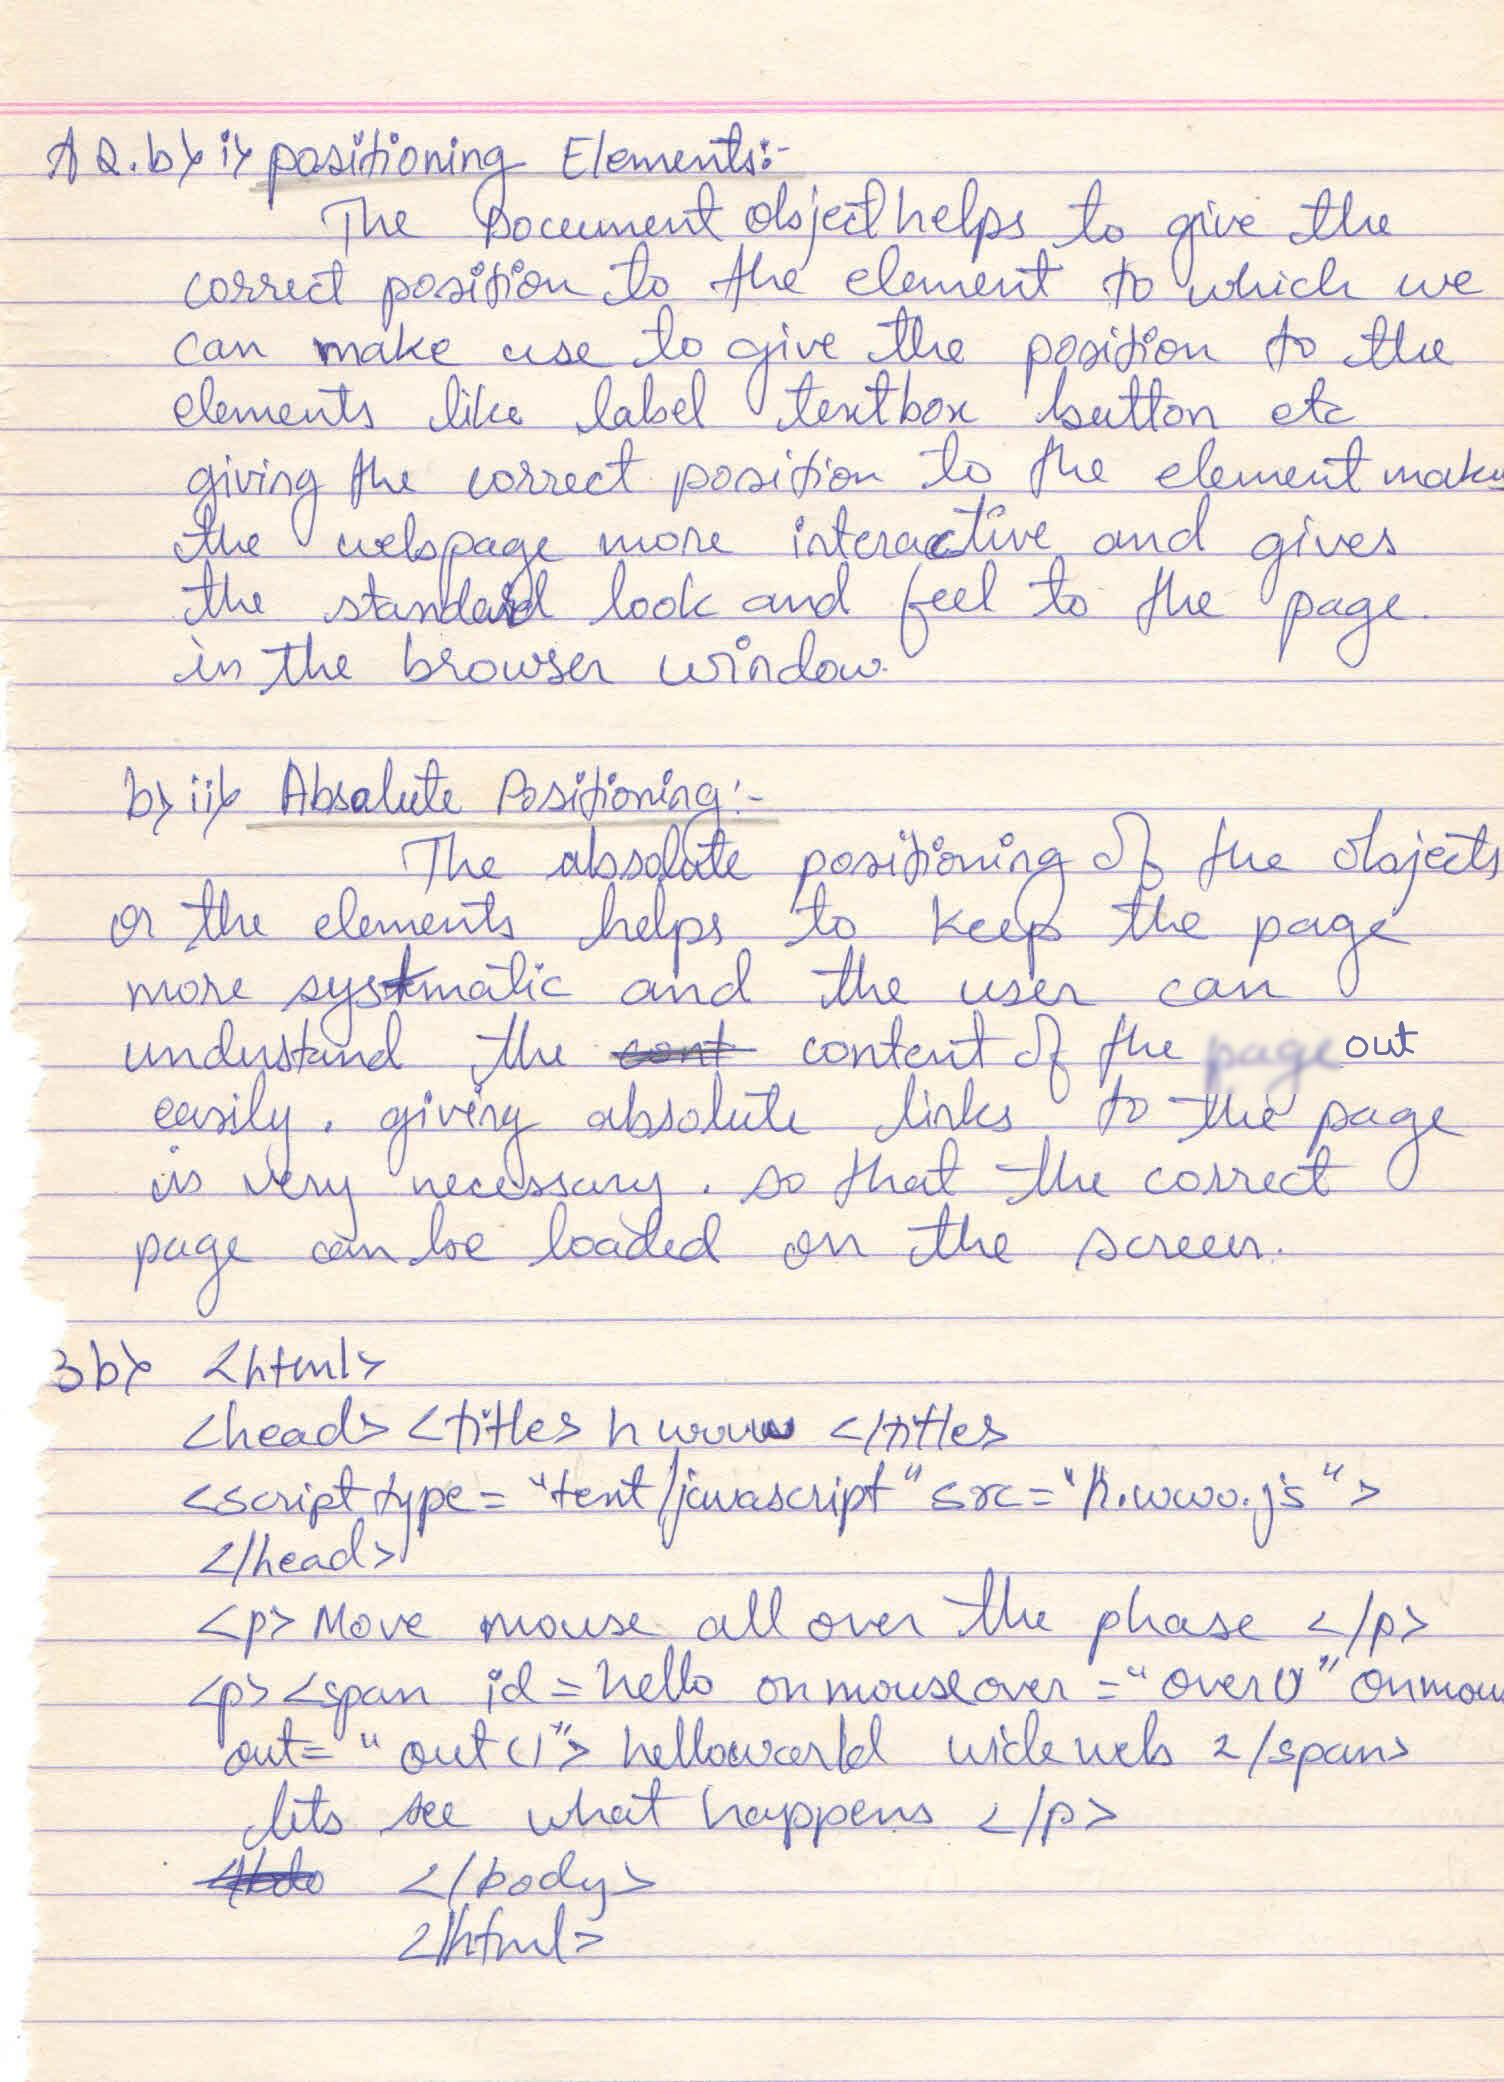 A Q.b> i> positioning Elements:-
The Document object helps to give the
correct position to the element to which we
can make use to give the position to the
elements like label textbox button etc
giving the correct position to the element makes
the webpage more interactive and gives
the standard look and feel to the page.
in the browser window.
b> ii> Absolute Positioning:-
The absolute positioning of the objects
or the elements helps to keep the page
more systmatic and the user can
understand the cont content of the out
easily. giving absolute links to the page
is very necessary. so that the correct
page can be loaded on the screen.
3b> <html>
<head> <title> hwww </title>
<script type = "text/javascript" src = "h.www.js">
</head>
<p> Move mouse all over the phase </p>
<p> <span id = hello onmouseover = "over()" onmou
out = "out()"> helloworld wide web </span>
lets see what happens </p>
</bdo </body>
</html>